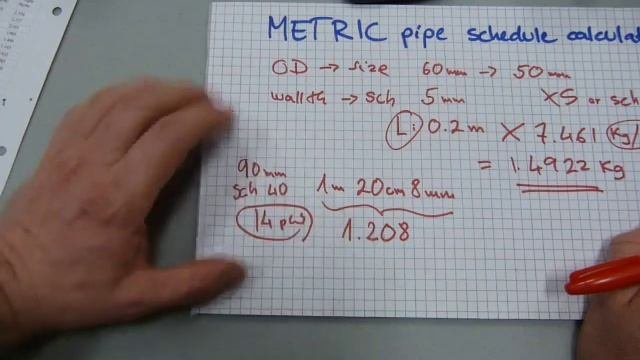 METRIC pipe schedule calculat
OD → size 60mm → 50mm
wallth → sch 5mm XS or sch
L: 0.2m × 7.461 Kg/
= 1.4922 Kg
90mm
sch 40 1m 20cm 8mm
14 pcs 1.208